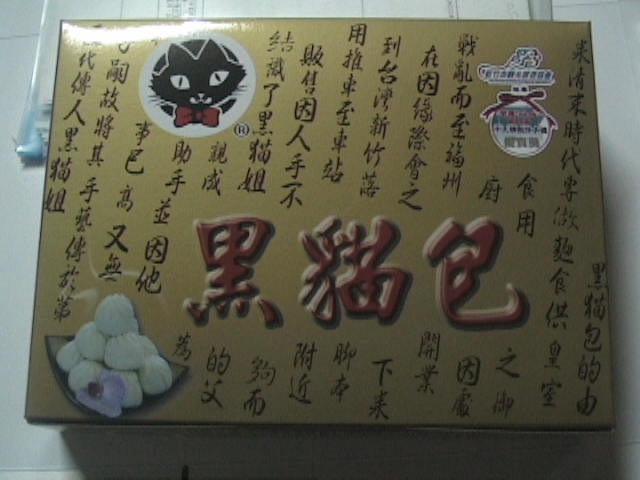 黑貓包的由
來清末時代專做麵食供皇室
食用
之御
廚
因處
戰亂而至福州
開業
在因緣際會之
下來
到台灣新竹落
腳本
用推車至車站
附近
販售因人手不
夠而
結識了黑貓姐
的父
親成
為
助手並因他
事已高又無
子嗣故將其手藝傳於第
二代傳人黑貓姐
黑貓包
®